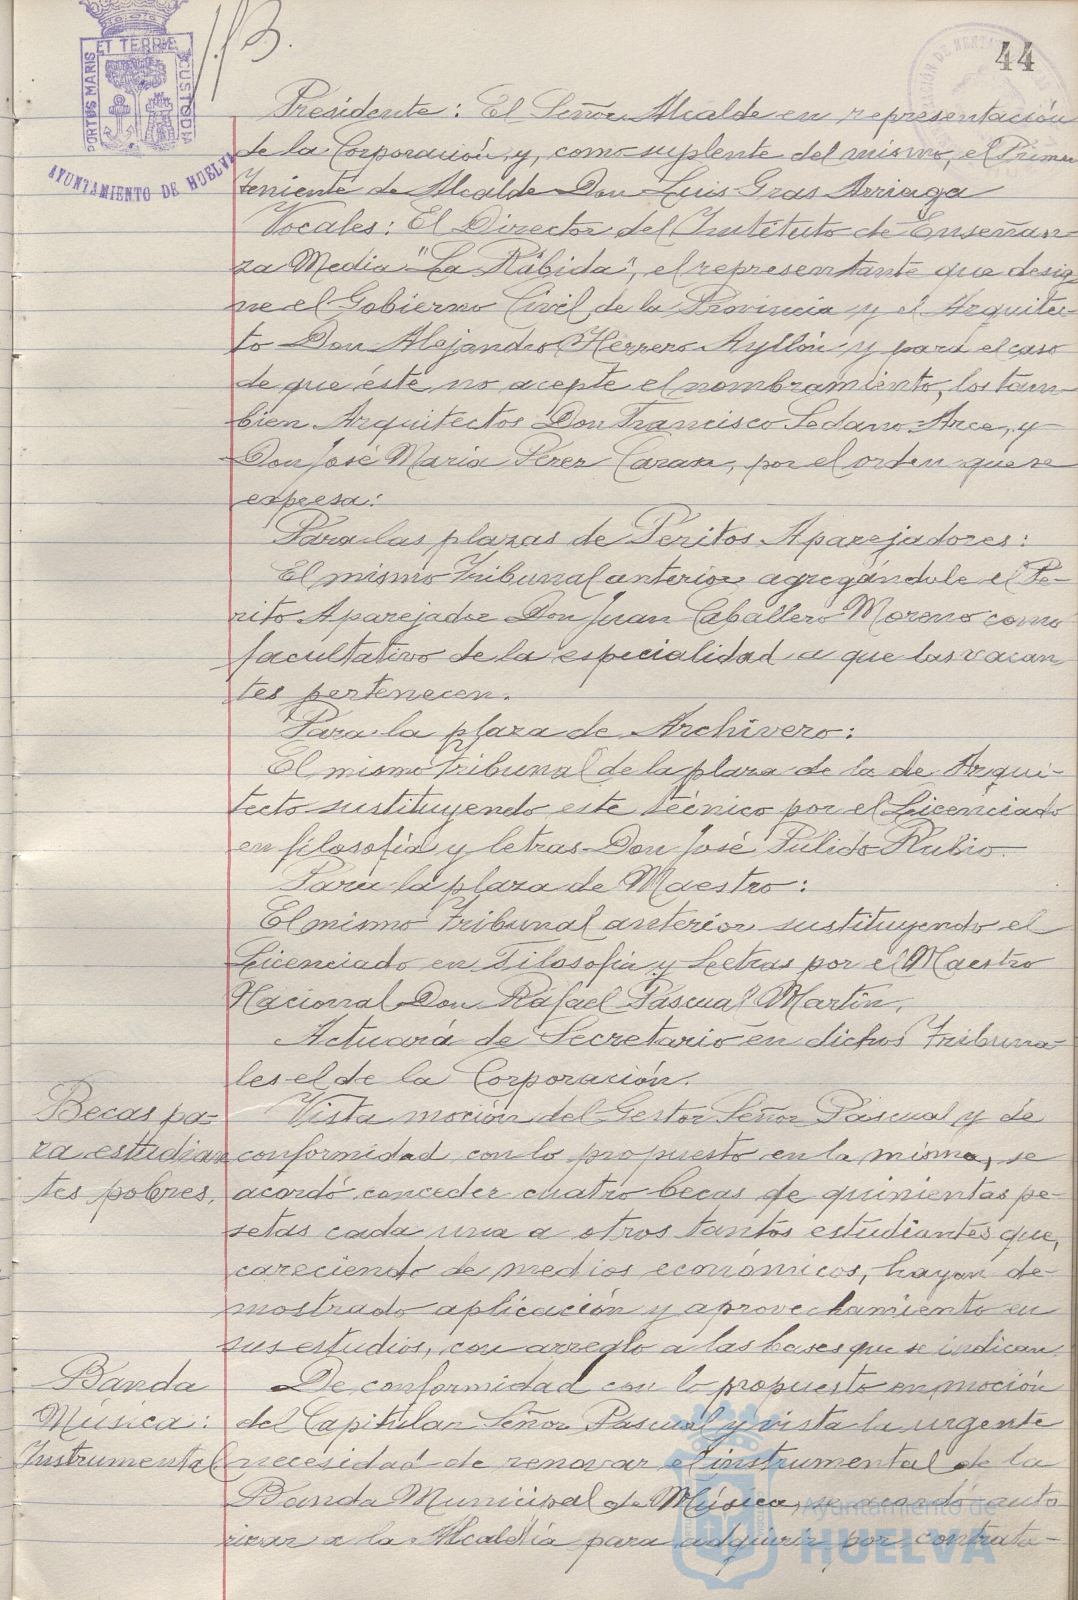 44
PORTUS MARIS ET TERRÆ CUSTODIA
AYUNTAMIENTO DE HUELVA
Presidente: El Señor Alcalde en representación
de la Corporación y, como suplente del mismo, el Primer
Teniente de Alcalde Don Luis Gras Arriaga
Vocales: El Director del Instituto de Enseñan-
za Media "La Rábida", el representante que desig-
ne el Gobierno Civil de la Provincia y el Arquitec-
to Don Alejandro Herrero Ayllón y para el caso
de que éste no acepte el nombramiento, los tam-
bien Arquitectos Don Francisco Sedano Arce, y
Don José María Perez Carasa, por el orden que se
expresa:
Para las plazas de Peritos Aparejadores:
El mismo Tribunal anterior agregándole el Pe-
rito Aparejador Don Juan Caballero Moreno como
facultativo de la especialidad a que las vacan-
tes pertenecen.
Para la plaza de Archivero:
El mismo Tribunal de la plaza de la de Arqui-
tecto sustituyendo este técnico por el Licenciado
en filosofía y letras Don José Pulido Rubio.
Para la plaza de Maestro:
El mismo Tribunal anterior sustituyendo el
Licenciado en Filosofía y Letras por el Maestro
Nacional Don Rafael Pascual Martín.
Actuará de Secretario en dichos Tribuna-
les el de la Corporación.
Becas pa-
ra estudian
tes pobres.
Vista moción del Gestor Señor Pascual y de
conformidad con lo propuesto en la misma, se
acordó conceder cuatro becas de quinientas pe-
setas cada una a otros tantos estudiantes que,
careciendo de medios económicos, hayan de-
mostrado aplicación y aprovechamiento en
sus estudios, con arreglo a las bases que se indican.
Banda
Música:
Instrumental
De conformidad con lo propuesto en moción
del Capitular Señor Pascual y vista la urgente
necesidad de renovar el instrumental de la
Banda Municipal de Música, se acordó auto
rizar a la Alcaldía para adquirir por contrata-
Ayuntamiento de
HUELVA